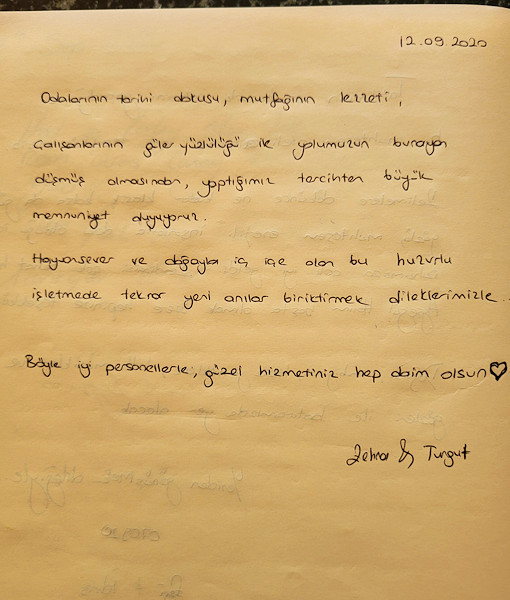 12.09.2020
Odalarının tarihi dokusu, mutfağının lezzeti,
Çalışanlarının güler yüzlülüğü ile yolumuzun buraya
düşmüş olmasından, yaptığımız tercihten büyük
memnuniyet duyuyoruz.
Hayvansever ve doğayla iç içe olan bu huzurlu
işletmede tekrar yeni anılar biriktirmek dileklerimizle..
Böyle iyi personellerle, güzel hizmetiniz hep daim olsun♡
Zehra & Turgut